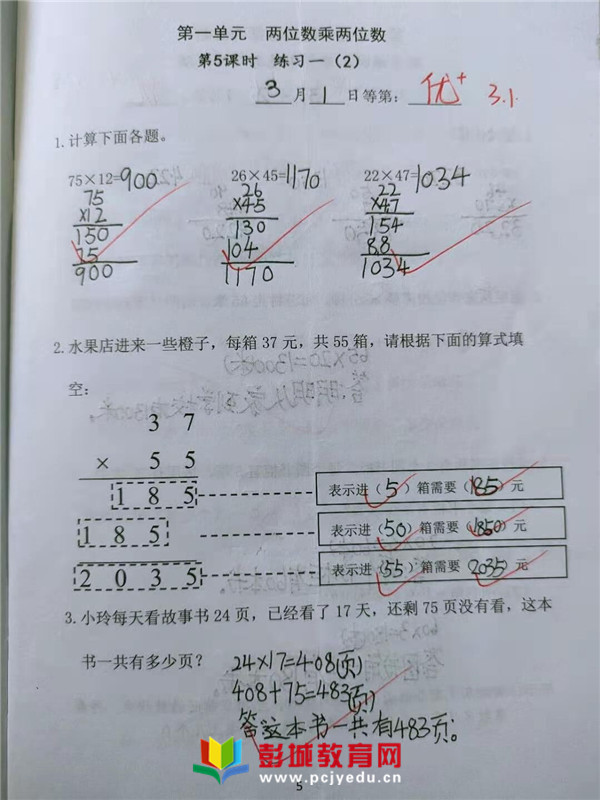 第一单元 两位数乘两位数
第5课时 练习一（2）
3月1日等第：优+ 3.1
1.计算下面各题。
75×12=900 26×45=1170 22×47=1034
75 26 22
×12 ×45 ×47
150 130 154
75 104 88
900 1170 1034
2.水果店进来一些橙子，每箱 37 元，共 55 箱，请根据下面的算式填
空：
3 7
× 5 5
1 8 5 表示进（5）箱需要（185）元
1 8 5 表示进（50）箱需要（1850）元
2 0 3 5 表示进（55）箱需要（2035）元
3.小玲每天看故事书 24 页，已经看了 17 天，还剩 75 页没有看，这本
书一共有多少页？
24×17=408(页)
408+75=483(页)
答:这本书一共有483页。
彭城教育网
www.pcjyedu.cn
5